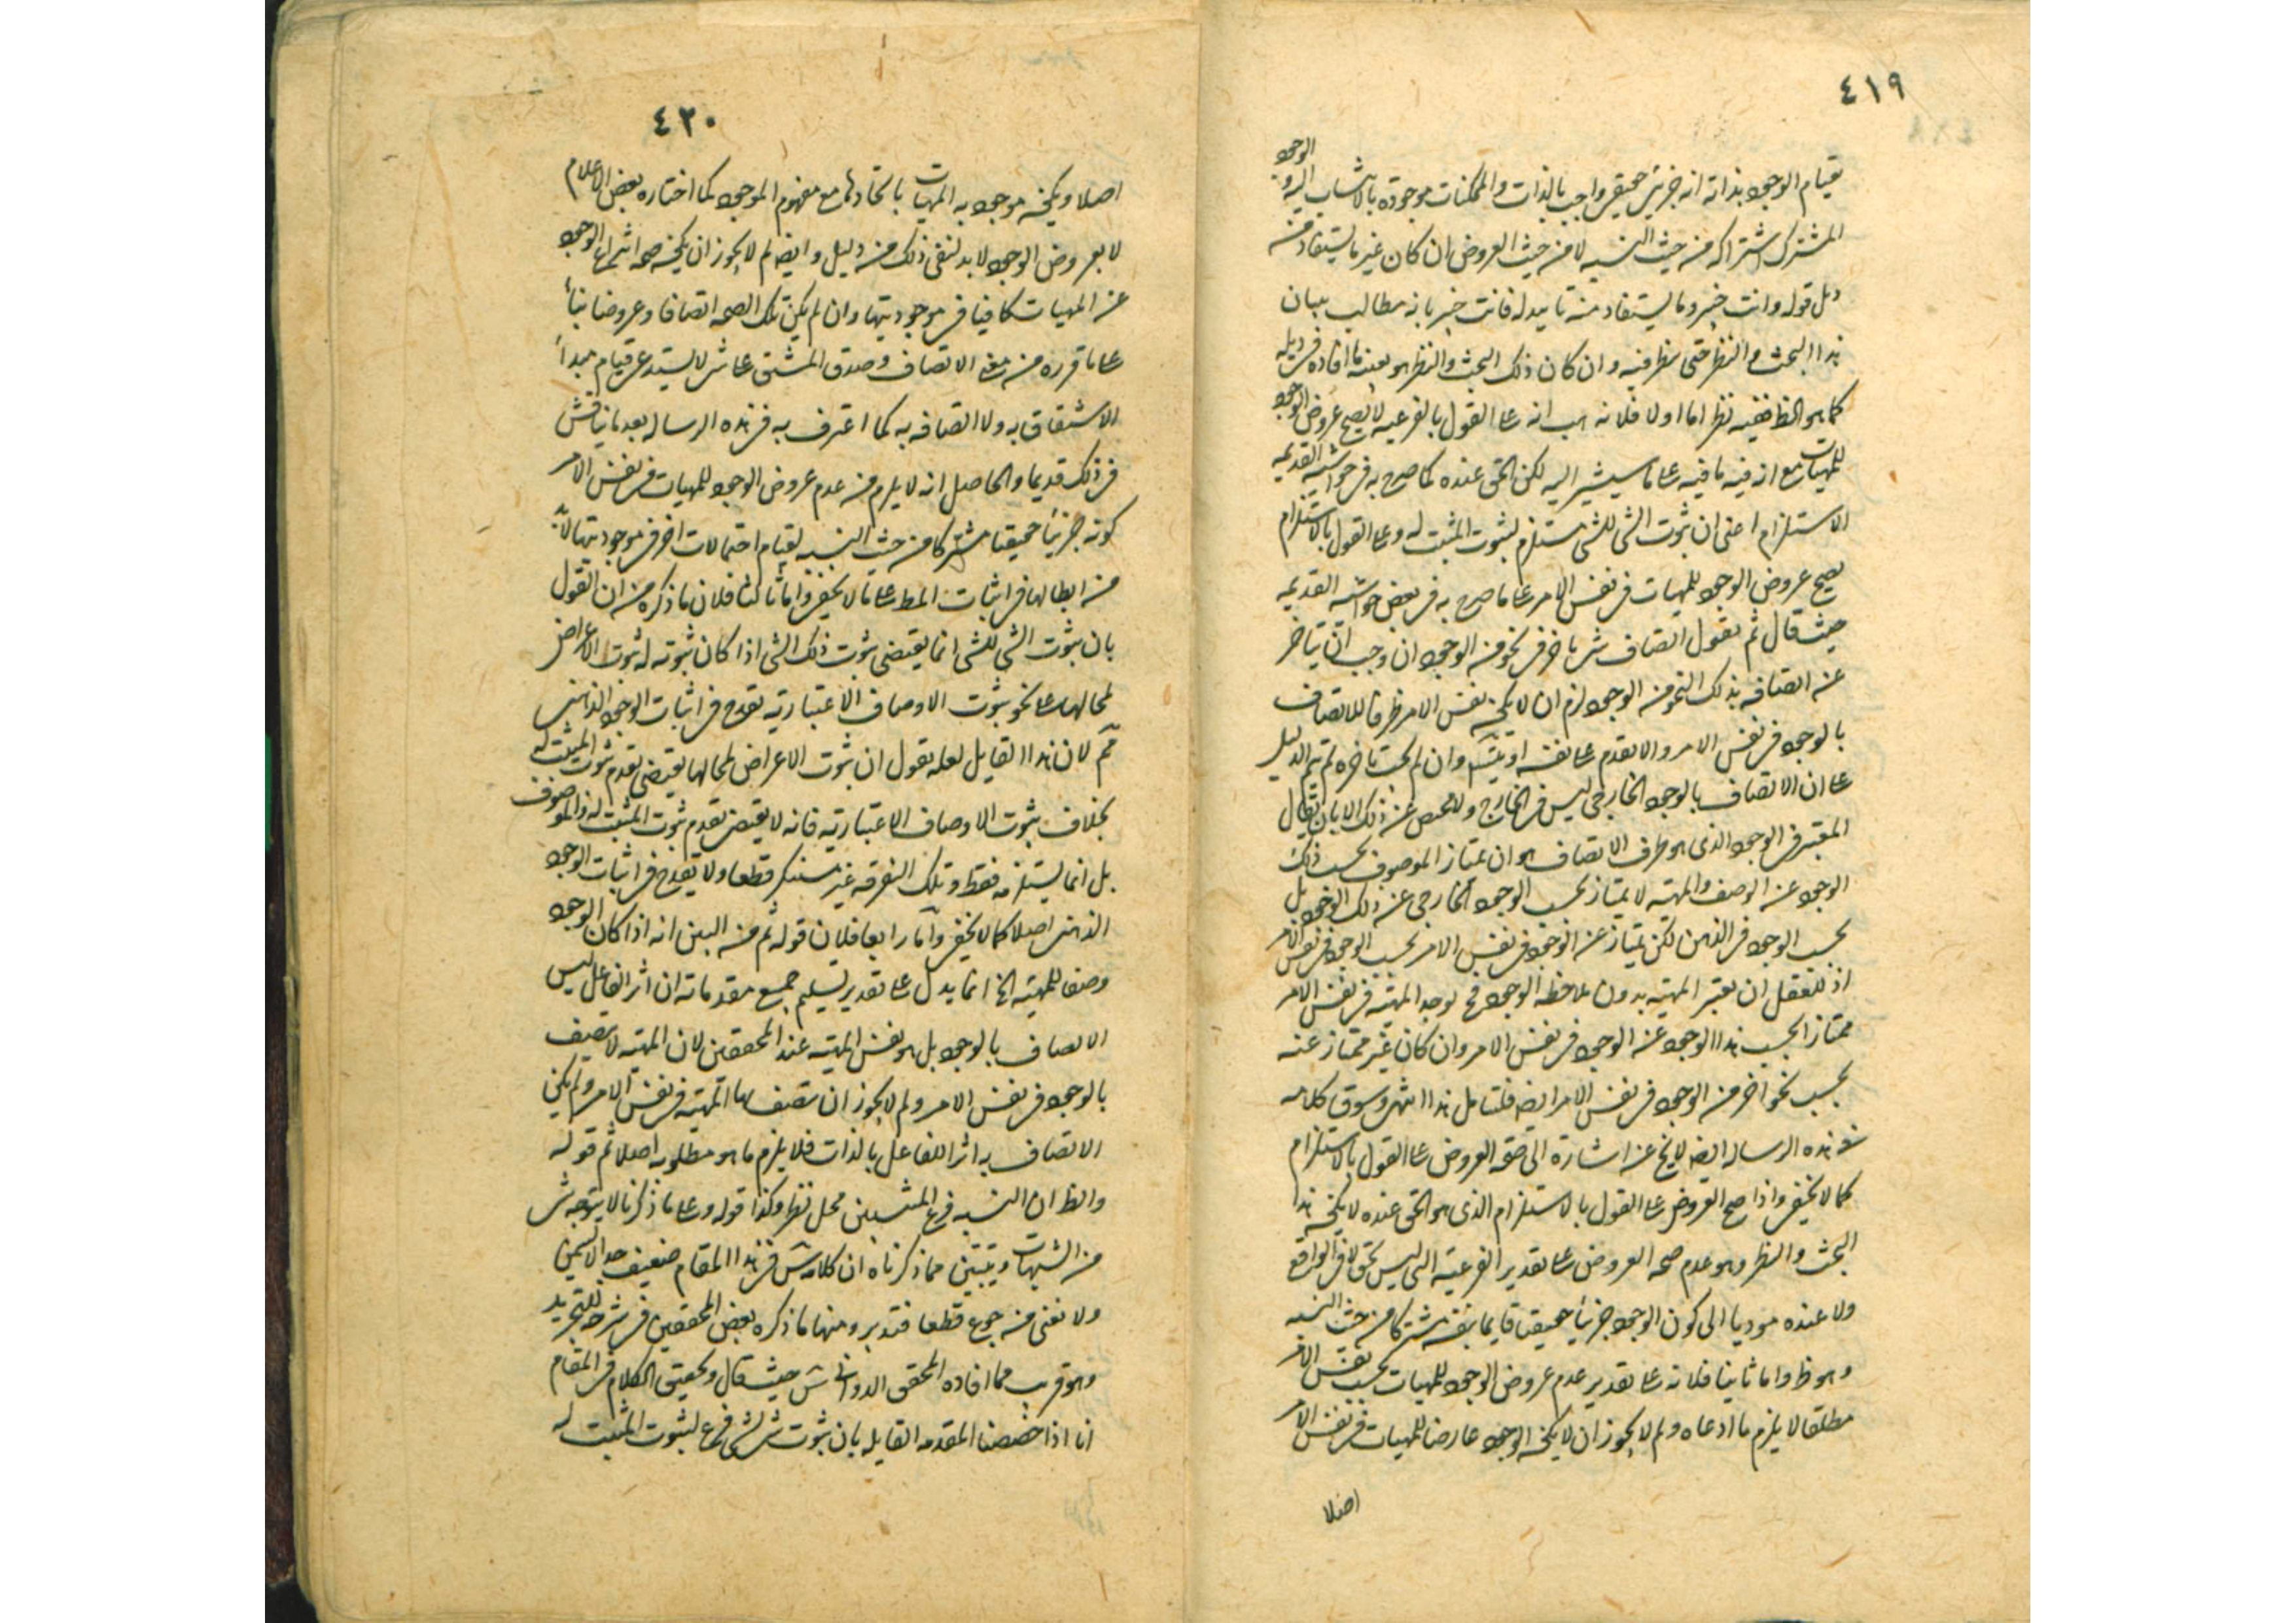 ٤١٩
بقيام الوجود بذاته انه جزئي حقيقي واجب بالذات والممكنات موجودة بالانتساب اليه و الوجود
المشترك اشتراكه من حيث النسبه لا من حيث العروض ان كان غير ما يستفاد منه
دليل قوله وانت خبير وما يستفاد منه تاييد له فانت خبير بانه مطالب ببيان
هذا البحث والنظر حتى ينظر فيه وان كان ذلك البحث والنظر هو بعينه ما افاده في ذيله
كما هو الظ ففيه نظر اما اولا فلانه هب انه على القول بالفرعيه لا يصح عروض الوجود
للمهيات مع ان فيه ما فيه على ما سيشير اليه لكن الحق عنده كما صرح به في حواشيه القديمه
الاستلزام اعنى ان ثبوت الشى للشى مستلزم لثبوت المثبت له وعلى القول بالاستلزام
يصح عروض الوجود للمهيات في نفس الامر على ما صرح به في بعض حواشيه القديمه
حيث قال ثم نقول اتصاف شى باخر في نحو من الوجود ان وجب ان يتاخر
عن اتصافه بذلك النحو من الوجود لزم ان لا يكون نفس الامر ظرفا للاتصاف
بالوجود في نفس الامر والا تقدم على نفسه او يتسلسل وان لم يجب تاخره لم يتم الدليل
على ان الاتصاف بالوجود الخارجي ليس في الخارج ولا محيص عن ذلك الا بان يقال
المعتبر في الوجود الذى هو ظرف الاتصاف هو ان يمتاز الموصوف بحسب ذلك
الوجود عن الوصف والمهية لا يمتاز بحسب الوجود الخارجي عن ذلك الوجود بل
بحسب الوجود في الذهن لكن يمتاز عن الوجود في نفس الامر بحسب الوجود في نفس الامر
اذ للعقل ان يعتبر المهية بدون ملاحظة الوجود فح يوجد المهية في نفس الامر
ممتازا بحسب هذا الوجود عن الوجود في نفس الامر وان كان غير ممتاز عنه
بحسب نحو اخر من الوجود في نفس الامر ايضه فليتامل هذا انتهى وسوق كلامه
في هذه الرساله ايضه لا يخ عن اشارة الى صحة العروض على القول بالاستلزام
كما لا يخفى واذا صح العروض على القول بالاستلزام الذى هو الحق عنده لا يكون هذا
البحث والنظر وهو عدم صحه العروض على تقدير الفرعية التى ليس بحق لا في الواقع
ولا عنده موديا الى كون الوجود جزئيا حقيقيا قايما بنفسه مشتركا من حيث النسبه
وهو ظ واما ثانيا فلانه على تقدير عدم عروض الوجود للمهيات بحسب نفس الامر
مطلقا لا يلزم ما ادعاه ولم لا يجوز ان لا يكون الوجود عارضا للمهيات في نفس الامر
اصلا
٤٢٠
اصلا ويكون موجوديه المهيات باتحادها مع مفهوم الموجود كما اختاره بعض الاعلام
لا بعروض الوجود لا بد لنفى ذلك من دليل وايضه لم لا يجوز ان يكون صحه انتزاع الوجود
عن المهيات كافيا في موجوديتها وان لم يكن تلك الصحه اتصافا وعروضا بناءً
على ما قرره من معنى الاتصاف وصدق المشتق على شى لا يستدعى قيام مبدأ
الاشتقاق به ولا اتصافه به كما اعترف به في هذه الرساله بعد ما يناقش
في ذلك قديما والحاصل انه لا يلزم من عدم عروض الوجود للمهيات في نفس الامر
كونه جزئيا حقيقيا مشتركا من حيث النسبه لقيام احتمالات اخر في موجوديتها لابد
من ابطالها في اثبات المط على ما لا يخفى واما ثالثا فلان ما ذكره من ان القول
بان ثبوت الشى للشى انما يقتضى ثبوت ذلك الشى اذا كان ثبوته له ثبوت الاعراض
لمحالها على نحو ثبوت الاوصاف الاعتبارية يقدح في اثبات الوجود الذهنى
مم لان هذا القايل لعله يقول ان ثبوت الاعراض لمحالها يقتضى تقدم ثبوت المثبت له
بخلاف ثبوت الاوصاف الاعتبارية فانه لا يقتضى تقدم ثبوت المثبت له والموصوف
بل انما يستلزمه فقط وتلك التفرقه غير مستنكر قطعا ولا يقدح في اثبات الوجود
الذهنى اصلا كما لا يخفى واما رابعا فلان قوله ثم من البين انه اذا كان الوجود
وصفا للمهية الخ انما يدل على تقدير تسليم جميع مقدماته ان اثر الفاعل ليس
الاتصاف بالوجود بل هو نفس المهية عند المحققين لان المهية لا تتصف
بالوجود في نفس الامر ولم لا يجوز ان تتصف بها المهية في نفس الامر ولم يكن
الاتصاف به اثر الفاعل بالذات فلا يلزم ما هو مطلوبه اصلا ثم قوله
والظ ان النسبه فرع المنتسبين محل نظر وكذا قوله وعلى ما ذكرنا لا يتوجه شى
من الشبهات ويتبين مما ذكرناه ان كلامه في هذا المقام ضعيف جدا لا يسمن
ولا يغنى من جوع قطعا فتدبر ومنها ما ذكره بعض المحققين في شرحه للتجريد
وهو قريب مما افاده المحقق الدوانى حيث قال وتحقيق الكلام في المقام
انا اذا خصصنا المقدمه القايله بان ثبوت شى لشى فرع لثبوت المثبت له